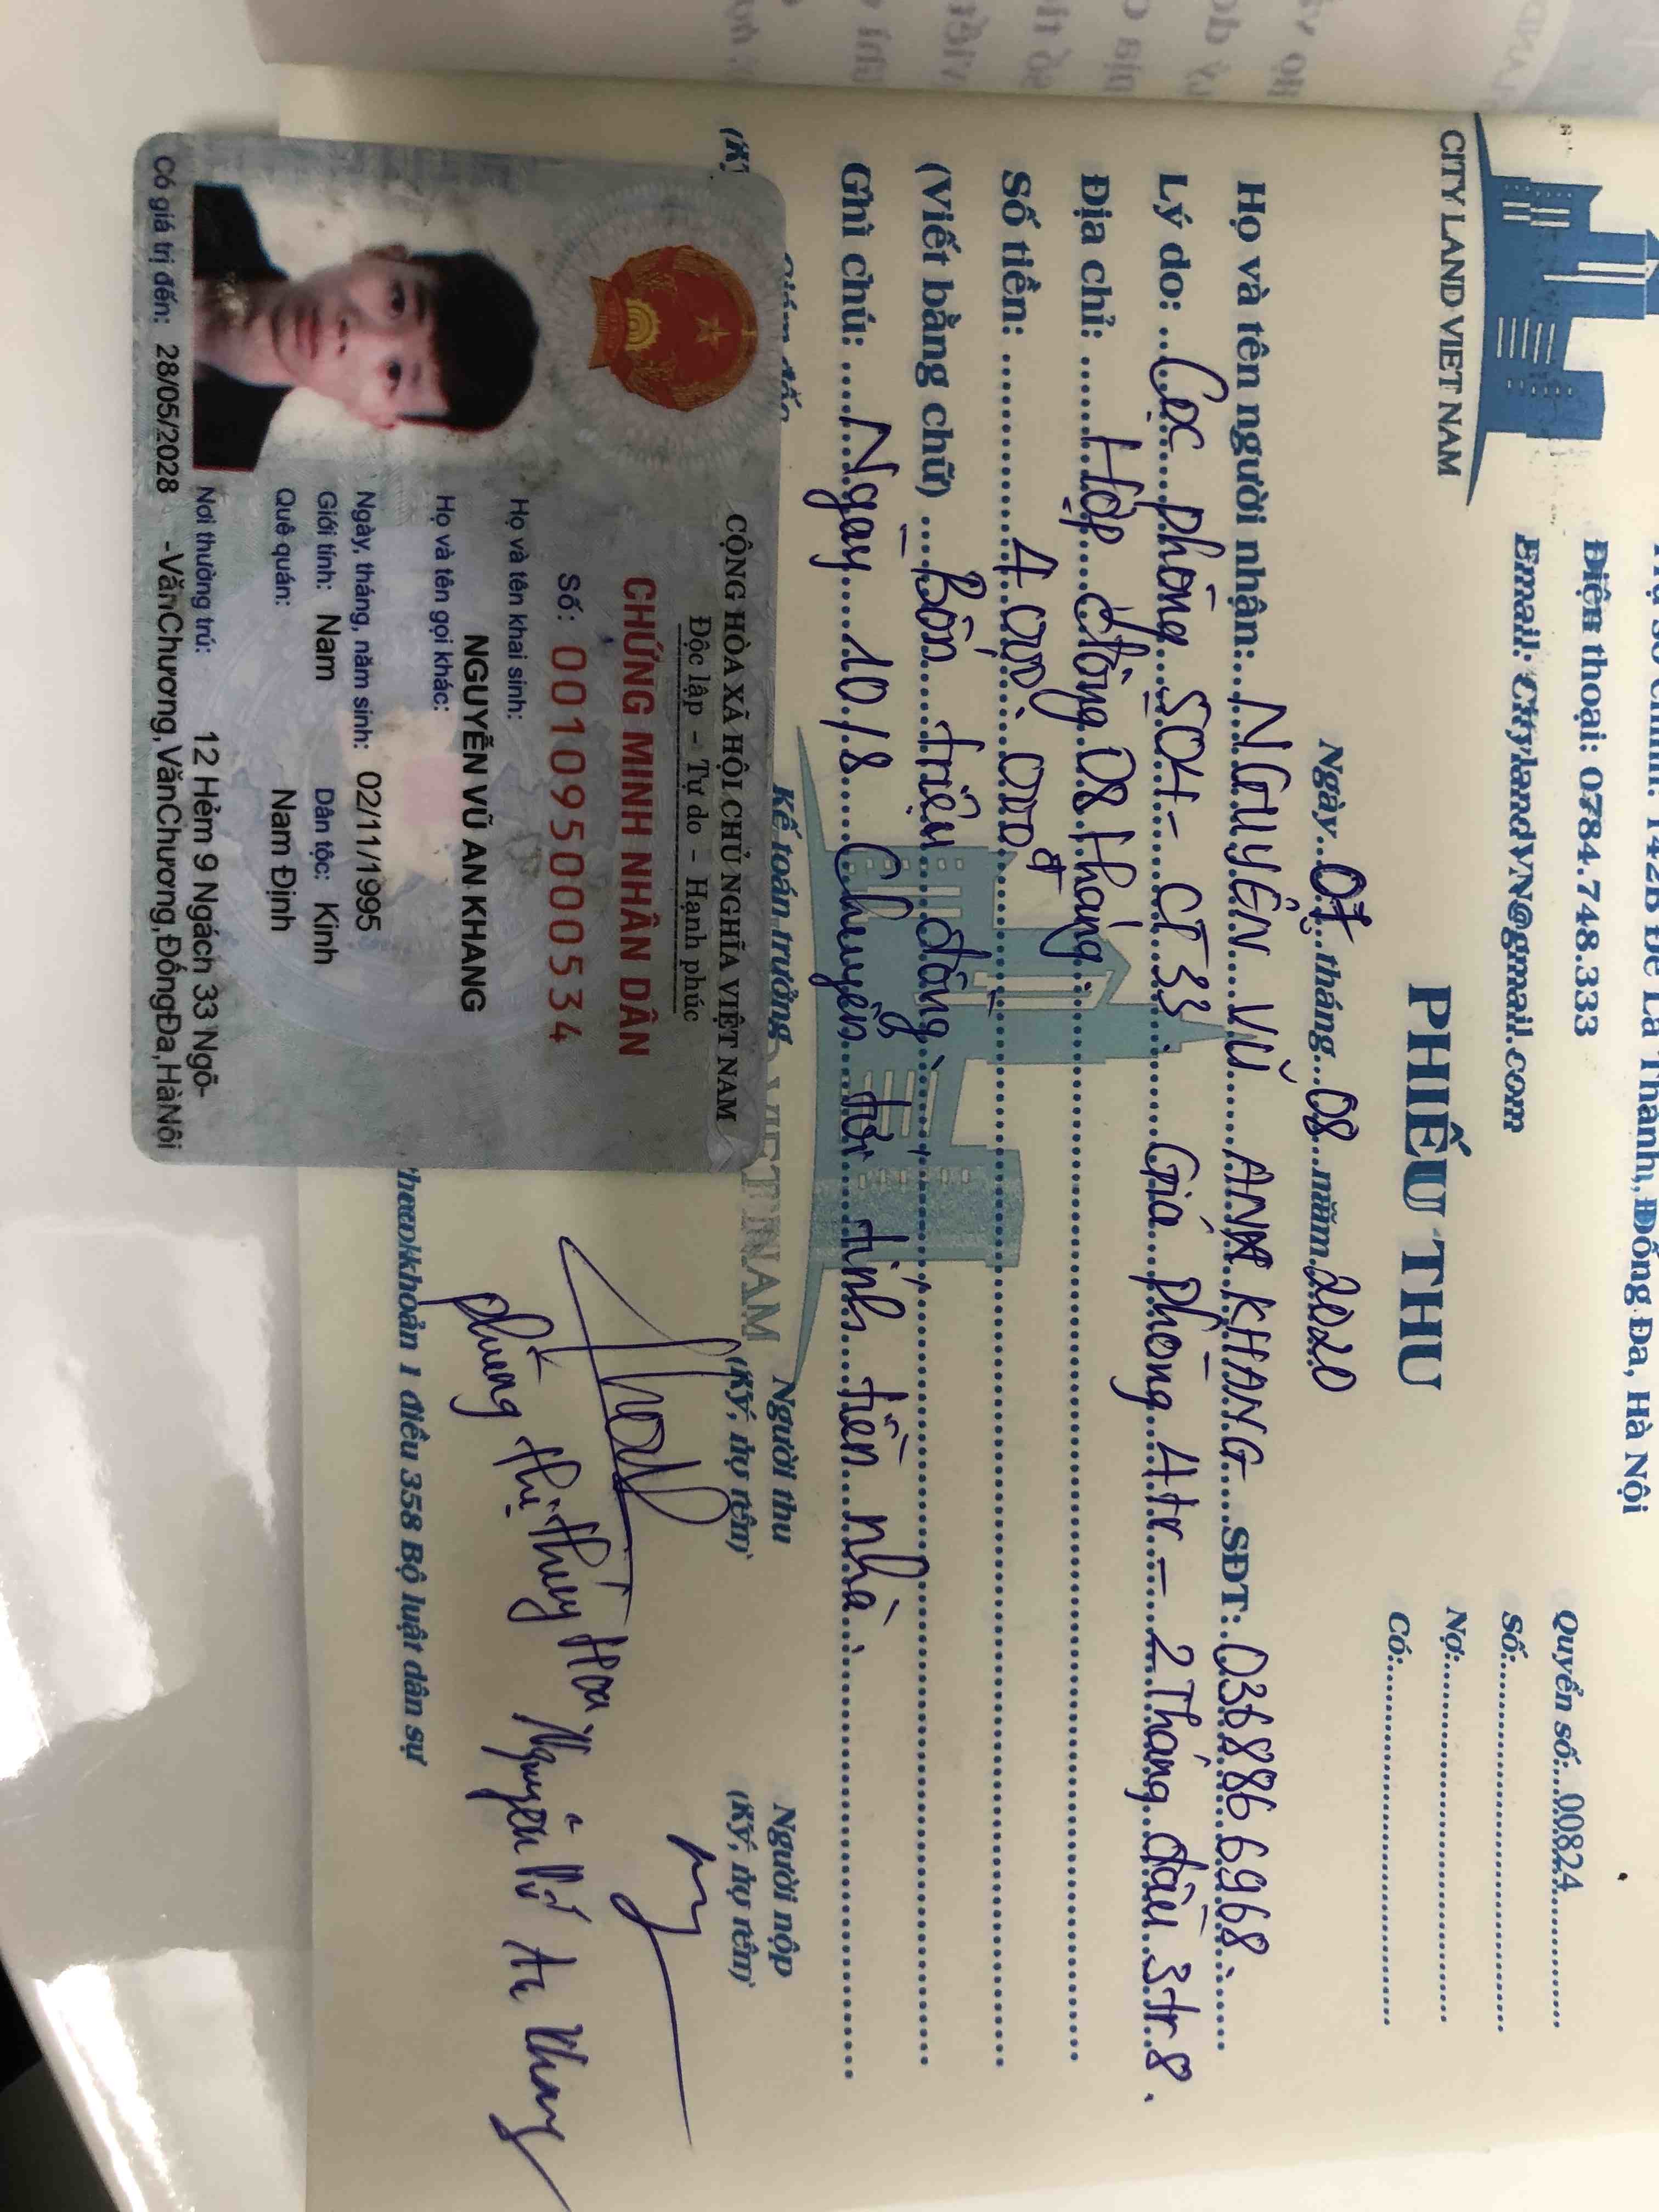 CITY LAND VIET NAM
142B Đê La Thành, Đống Đa, Hà Nội
Điện thoại: 0784.748.333
Email: CitylandVN@gmail.com
Quyển số:...00824
Số:
Nợ:
Có:
PHIẾU THU
Ngày 07 tháng 08 năm 2020
Họ và tên người nhận: NGUYỄN VŨ AN KHANG SĐT: 0368866968
Lý do: Cọc phòng 504 - CT33. Giá phòng 4tr - 2 Tháng đầu 3tr8.
Địa chỉ: Hợp đồng 08 Tháng
Số tiền: 4.000.000đ
(Viết bằng chữ) Bốn triệu đồng
Ghi chú: Ngày 10/8 Chuyển tới tính tiền nhà.
Kế toán trưởng
Người thu
(Ký, họ tên)
Người nộp
(Ký, họ tên)
VIET NAM
Phùng Thị Thúy Hoa
Nguyễn Vũ An Khang
khoản 1 điều 358 Bộ luật dân sự
CỘNG HÒA XÃ HỘI CHỦ NGHĨA VIỆT NAM
Độc lập - Tự do - Hạnh phúc
CHỨNG MINH NHÂN DÂN
Số: 001095000534
Họ và tên khai sinh:
NGUYỄN VŨ AN KHANG
Họ và tên gọi khác:
Ngày, tháng, năm sinh: 02/11/1995
Giới tính: Nam Dân tộc: Kinh
Quê quán: Nam Định
Nơi thường trú: 12 Hẻm 9 Ngách 33 Ngõ-
-VănChương,VănChương,ĐốngĐa,HàNội
Có giá trị đến: 28/05/2028